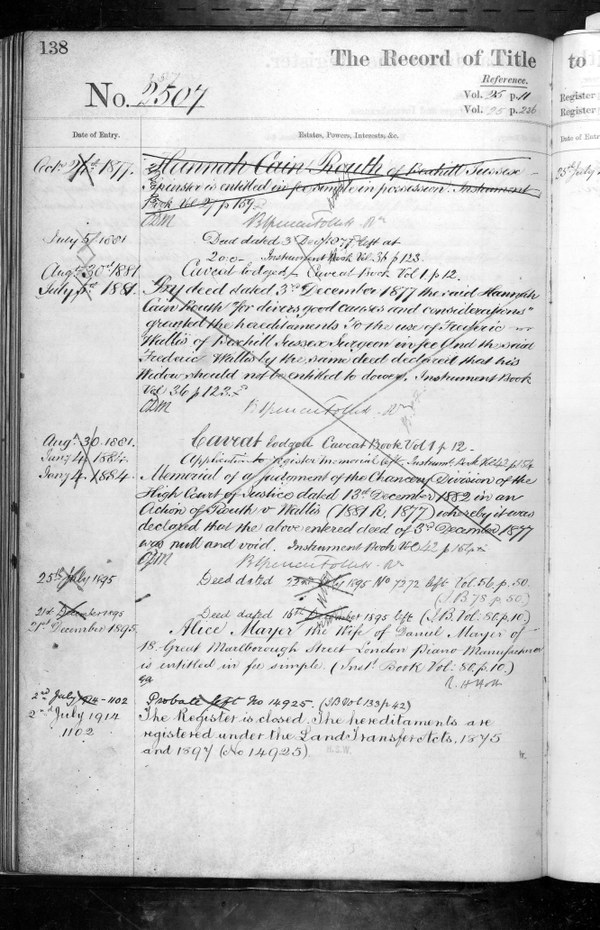 138
The Record of Title
No. 2507
Reference.
Vol. p. 11
Vol. 25 p. 226
Date of Entry.
Estates, Powers, Interests, &c.
1877. Hannah Cain Routh of Bexhill Sussex
Spinster is entitled in fee simple in possession. Instrument
Book Vol 27 p 157
July 5/1881 Deed dated 3rd Decr 1877 left at
2.0.0 Instrument Book Vol. 36 p 123.
Augt 30th 1881 Caveat lodged Caveat Book Vol 1 p 12.
July 5th 1881. By deed dated 3rd December 1877 the said Hannah
Cain Routh "for divers good causes and considerations"
granted the hereditaments To the use of Frederic
Wallis of Bexhill Sussex Surgeon in fee And the said
Frederic Wallis by the same deed declared that his
Widow should not be entitled to dower. Instrument Book
Vol 36 p 123.
Augt 30. 1881. Caveat lodged Caveat Book Vol 1 p 12.
Jany 4. 1884. Application to register memorial left. Instrumt Book Vol 42 p 164
Jany 4. 1884. Memorial of a judgment of the Chancery Division of the
High Court of Justice dated 13th December 1882 in an
Action of Routh v Wallis (1881 R. 1877) whereby it was
declared that the above entered deed of 3rd December 1877
was null and void. Instrument Book Vol 42 p 164
25th July 1895 Deed dated July 1895 No 7372 left Vol. 56. p. 50.
(I.B. 78 p 50)
21st December 1895 Deed dated 16th December 1895 left (I.B. Vol: 80, p. 10.)
21st December 1895. Alice Mayer the Wife of Daniel Mayer of
18 Great Marlborough Street London Piano Manufacturer
is entitled in fee simple. (Inst: Book Vol: 80, p. 10.)
2nd July 1914 - 1102 Probate left No 14925. (I B Vol 133 p 42)
2nd July 1914 The Register is closed. The hereditaments are
1102 registered under the Land Transfer Acts, 1875
and 1897 (No 14925)
to
Register
Register
Date of Ent
25th July